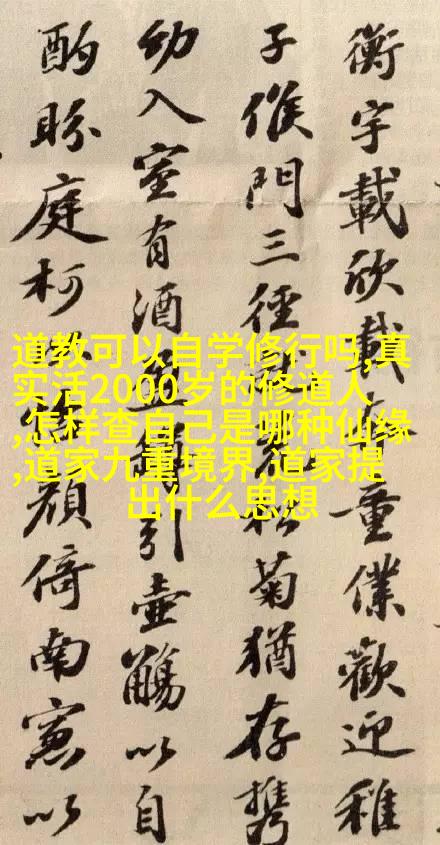 衡宇載欣載童僕歡迎稚
子候門三徑松菊猶存携
幼入室有酒盈引壺觴以自
酌眄庭柯顏倚南窻以
道教可以自学修行吗,真
实活2000岁的修道人
,怎样查自己是哪种仙缘
,道家九重境界,道家提
出什么思想